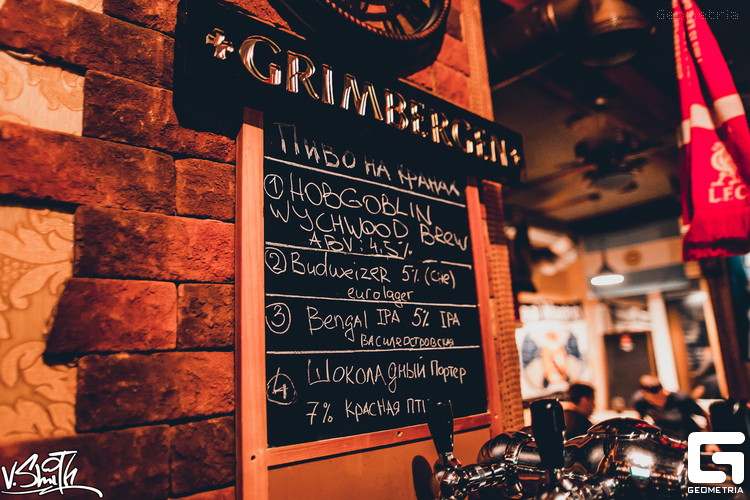 Geometria
+GRIMBERGEN+
Пиво на кранах
① HOBGOBLIN
WYCHWOOD BREW
ABV: 4,5%
② Budweizer 5% (Che)
eurolager
③ Bengal IPA 5% IPA
Василеостровская
④ Шоколадный Портер
7% Красная пти
L.F.C
V.Smith
GEOMETRIA